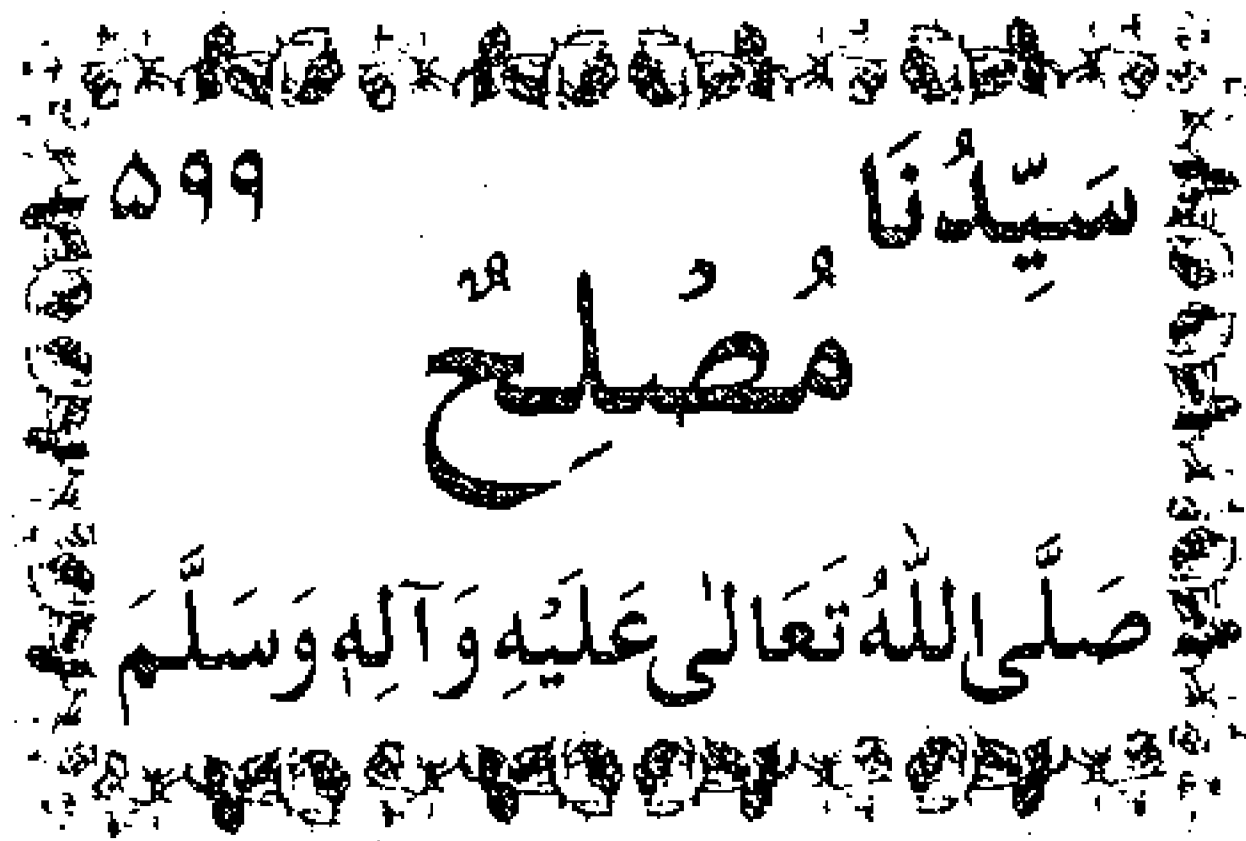 سَيِّدُنَا ۵۹۹
مُصْلِحٌ
صَلَّى اللّٰهُ تَعَالىٰ عَلَيْهِ وَآلِهٖ وَسَلَّمَ